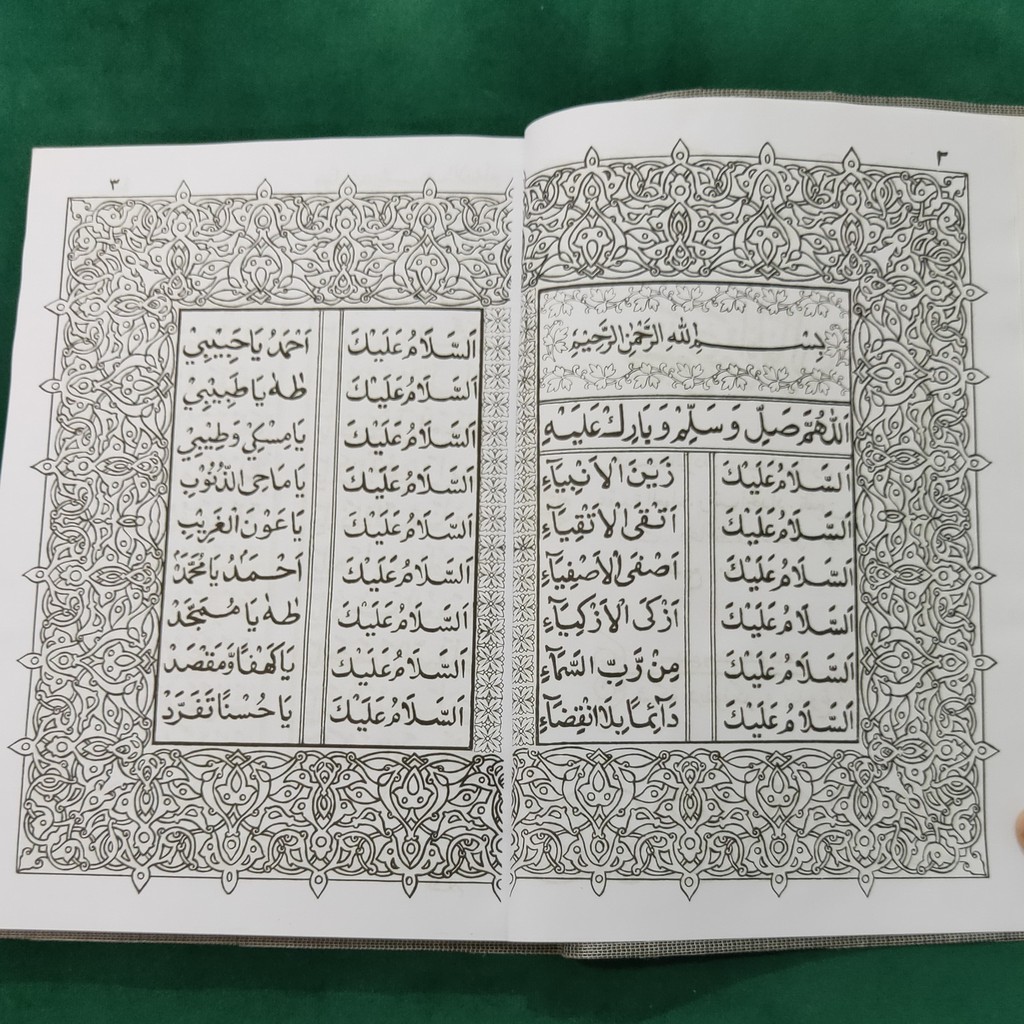 ٢
بِسْــــمِ اللهِ الرَّحْمٰنِ الرَّحِيْمِ
اَللّٰهُمَّ صَلِّ وَسَلِّمْ وَبَارِكْ عَلَيْهِ
اَلسَّلَامُ عَلَيْكَ زَيْنَ الْاَنْبِيَآءِ
اَلسَّلَامُ عَلَيْكَ اَتْقَى الْاَتْقِيَآءِ
اَلسَّلَامُ عَلَيْكَ اَصْفَى الْاَصْفِيَآءِ
اَلسَّلَامُ عَلَيْكَ اَزْكَى الْاَزْكِيَآءِ
اَلسَّلَامُ عَلَيْكَ مِنْ رَّبِّ السَّمَآءِ
اَلسَّلَامُ عَلَيْكَ دَآئِمًا بِلَا انْقِضَآءِ
٣
اَلسَّلَامُ عَلَيْكَ اَحْمَدُ يَا حَبِيْبِيْ
اَلسَّلَامُ عَلَيْكَ طٰهٰ يَا طَبِيْبِيْ
اَلسَّلَامُ عَلَيْكَ يَا مِسْكِيْ وَطِيْبِيْ
اَلسَّلَامُ عَلَيْكَ يَا مَاحِى الذُّنُوْبِ
اَلسَّلَامُ عَلَيْكَ يَا عَوْنَ الْغَرِيْبِ
اَلسَّلَامُ عَلَيْكَ اَحْمَدُ يَا مُحَمَّدْ
اَلسَّلَامُ عَلَيْكَ طٰهٰ يَا مُمَجَّدْ
اَلسَّلَامُ عَلَيْكَ يَا كَهْفًا وَّمَقْصَدْ
اَلسَّلَامُ عَلَيْكَ يَا حُسْنًا تَفَرَّدْ